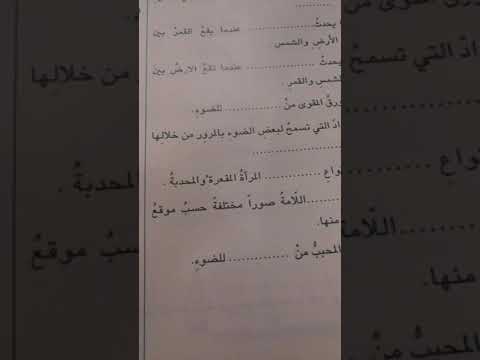 يحدثُ .................. عندما يقعُ القمرُ بينَ
الأرضِ والشمس
يحدثُ .................. عندما تقعُ الارضُ بينَ
الشمس والقمرِ.
ورقُ المقوى منْ .............. للضوءِ.
التي تسمحُ لبعض الضوء بالمرور من خلالِها
..................
.............. المرآةُ المقعرةُ والمحدبةُ .
..........اللّامةُ صوراً مختلفةً حسبُ موقعُ
منها.
المحببُّ منْ .............. للضوءِ.